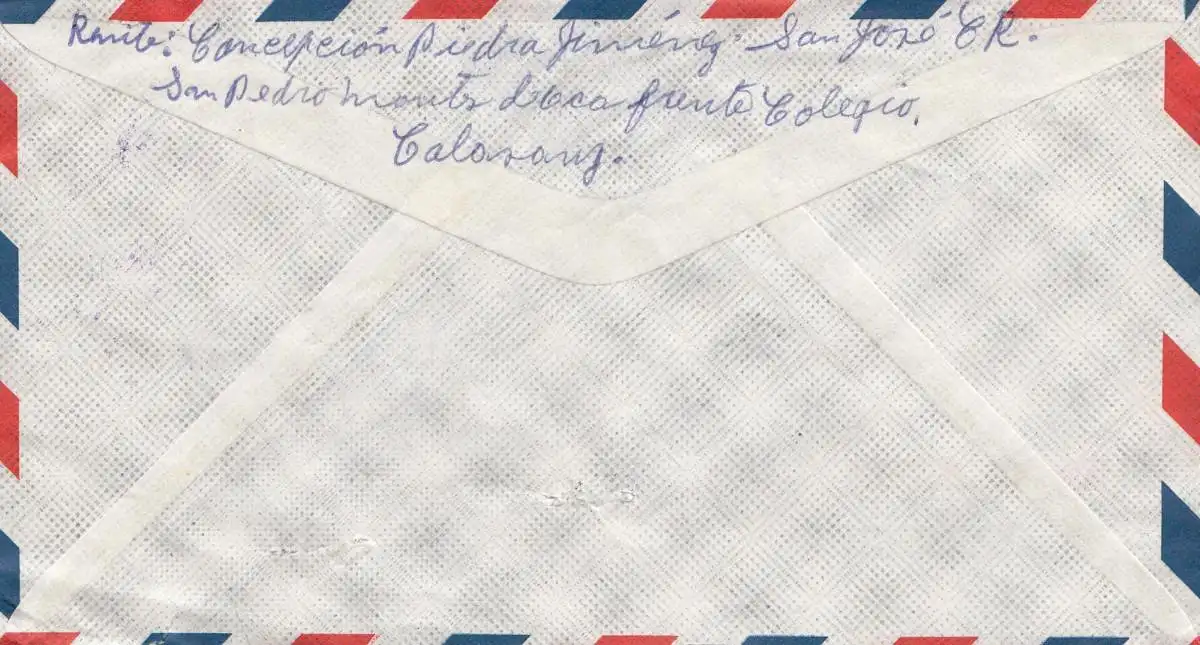 Remite: Concepción Piedra Jiménez. San José CR.
San Pedro Montes de Oca frente Colegio,
Calasanz.